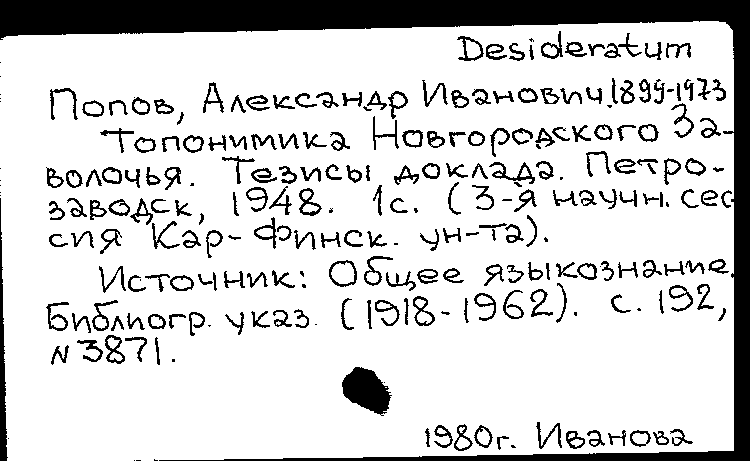 Desideratum
Попов, Александр Иванович, 1899-1973
Топонимика Новгородского За-
волочья. Тезисы доклада. Петро-
заводск, 1948. 1с. (3-я научн. сес
сия Кар-Финск. ун-та).
Источник: Общее языкознание.
Библиогр. указ. (1918-1962). с. 192,
N 3871.
1980г. Иванова